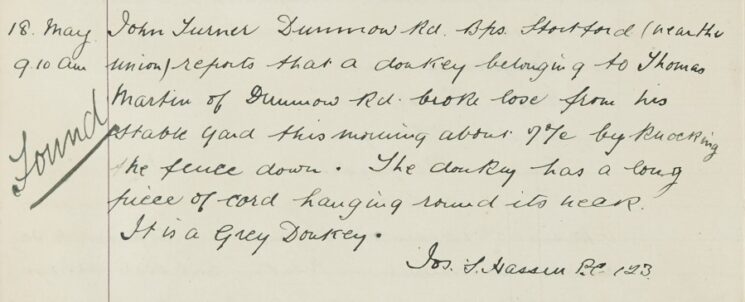 18. May. John Turner Dunmow Rd. Bps. Stortford (near the
9.10 am union) reports that a donkey belonging to Thomas
Martin of Dunmow Rd. broke lose from his
Found stable yard this morning about by knocking
the fence down. The donkey has a long
piece of cord hanging round its neck.
It is a Grey Donkey.
Jos. S. P.C. 123.